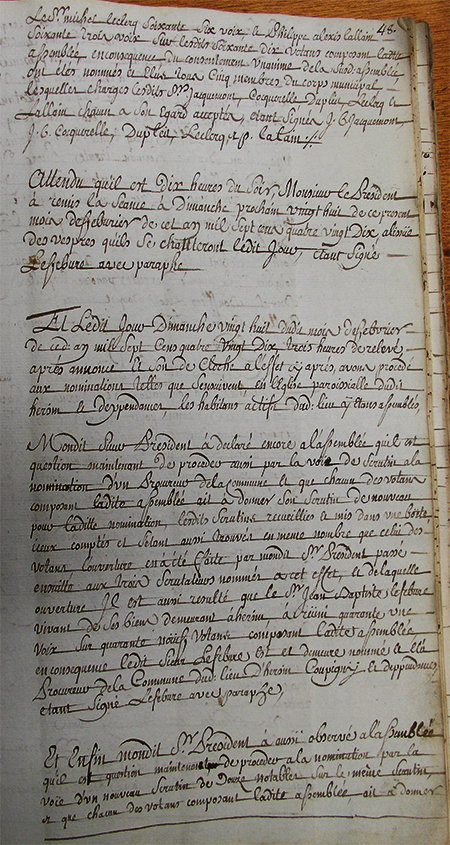 48.
Le Sr. michel Leclercq Soixante Six voix, et Philippe alexis Lallain
Soixante trois voix Sur lesdits Soixante Dix Votans composant ladite
assemblée, en consequence du consentement Unanime de la Susd. assemblée
ont étés nommés et Elus tous Cinq membres du Corps municipal,
lesquelles charges lesdits Srs Jacquemont, Cocquerelle, Dupleu, Leclerq et
Lallain chacun a Son Egard acceptés, etant Signés J. B. Jacquemont,
J. C. Cocquerelle, Dupleu, Leclercq et p. lalain //.
Attendu quil est Dix heures du Soir, Monsieur le President
à remis la Seance à Dimanche prochain vingt huit de ce present
mois de febvrier de cet an mil Sept cens quatre vingt Dix, a l'issüe
Des vespres quils Se chanteront ledit Jour, etant Signé
Lefebure avec paraphe
Et Ledit Jour Dimanche vingt huit dudit mois de febvrier
de ced. an mil Sept Cens quatre Vingt Dix, trois heures de relevé
apres annonce et Son de Cloche à l'effet cy après, avons procédé
aux nominations telles que Sensuivent, en l'Eglise paroissialle dudit
herim et Deppendances les habitans actifs dud. lieu aÿ étans assemblés
Mondit Sieur President à declaré encore a l'assemblée qu'il est
question maintenant de proceder aussi par la voie de Scrutin a la
nomination d'un Procureur de la Commune et que chacun des Votans
composant ladite assemblée ait à donner Son Scrutin de nouveau
pour ladite nomination, lesdits Scrutins recueillies et mis dans une boëte,
iceux comptés et S'étant aussi trouvés en meme nombre que celui des
Votans, l'ouverture en a été faite par mondit Sr. President, passe
ensuitte aux trois Scrutateurs nommés a cet effet, et de laquelle
ouverture Il est aussi resulté que le Sr. Jean Baptiste Lefebure
vivant de Ses biens demeurant à herim, à reuni quarante une
Voix Sur quarante neuf Votans composant ladite assemblée
en consequence ledit Sieur Lefebure est et demeure nommé et Elü
Procureur de la Commune dud. lieu d'herim Coupigny et deppendances,
etant Signé Lefebure avec paraphe,
Et Enfin mondit Sr. President à aussi observés a l'assemblée
qu'il est question maintenant de proceder a la nomination par la
voie d'un nouveau Scrutin de Douze notables Sur le même Scrutin,
et que chacun des votans composant ladite assemblée, ait à donner